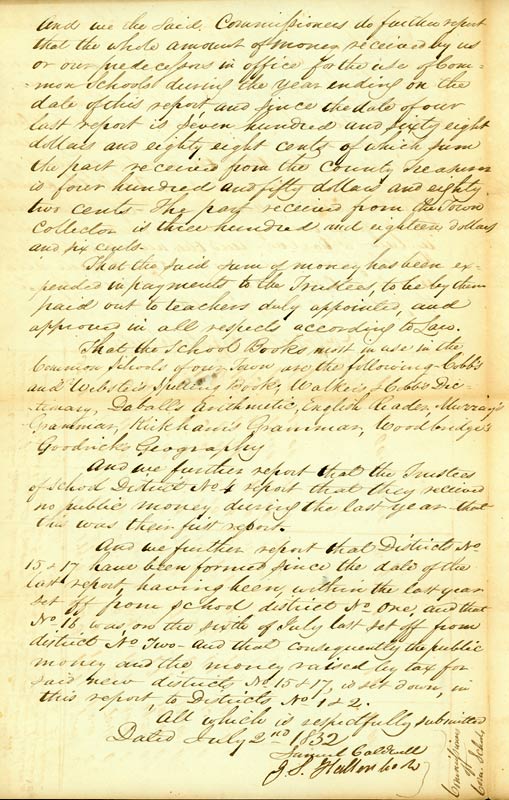 And we the said Commissioners do further report
that the whole amount of money received by us
or our predecessors in office for the use of Com-
-mon Schools during the year ending on the
date of this report and since the date of our
last report is seven hundred and sixty eight
dollars and eighty eight cents of which sum
the part received from the County Treasurer
is four hundred and fifty dollars and eighty
two cents- The part received from the Town
Collector is three hundred and eighteen dollars
and six cents.
That the said sum of money has been ex-
pended in payments to the Trustees, to be by them
paid out to teachers duly appointed, and
approved in all respects according to Law.
That the School Books most in use in the
Common Schools of our Town are the following Cobb's
and Webster's Spelling Books, Walker & Cobb's Dic-
tionary, Daballs Arithmetic, English Reader, Murray's
Grammar, Kirkham's Grammar, Woodbridge's
Goodrick's Geography
And we further report that the Trustees
of School District No 4 report that they received
no public money during the last year that
this was their first report.
And we further report that Districts No
15 & 17 have been formed since the date of the
last report, having been, within the last year
set off from school district No One, and that
No 16 was, on the sixth of July last set off from
district No Two- and that consequently the public
money and the money raised by tax for
said new districts, No 15 & 17, is set down, in
this report, to Districts No 1 & 2.
All which is respectfully submitted
Dated July 2nd 1832
Samuel Caldwell
J. S. Hallenbeck
Commissioners
of
Com. Schools